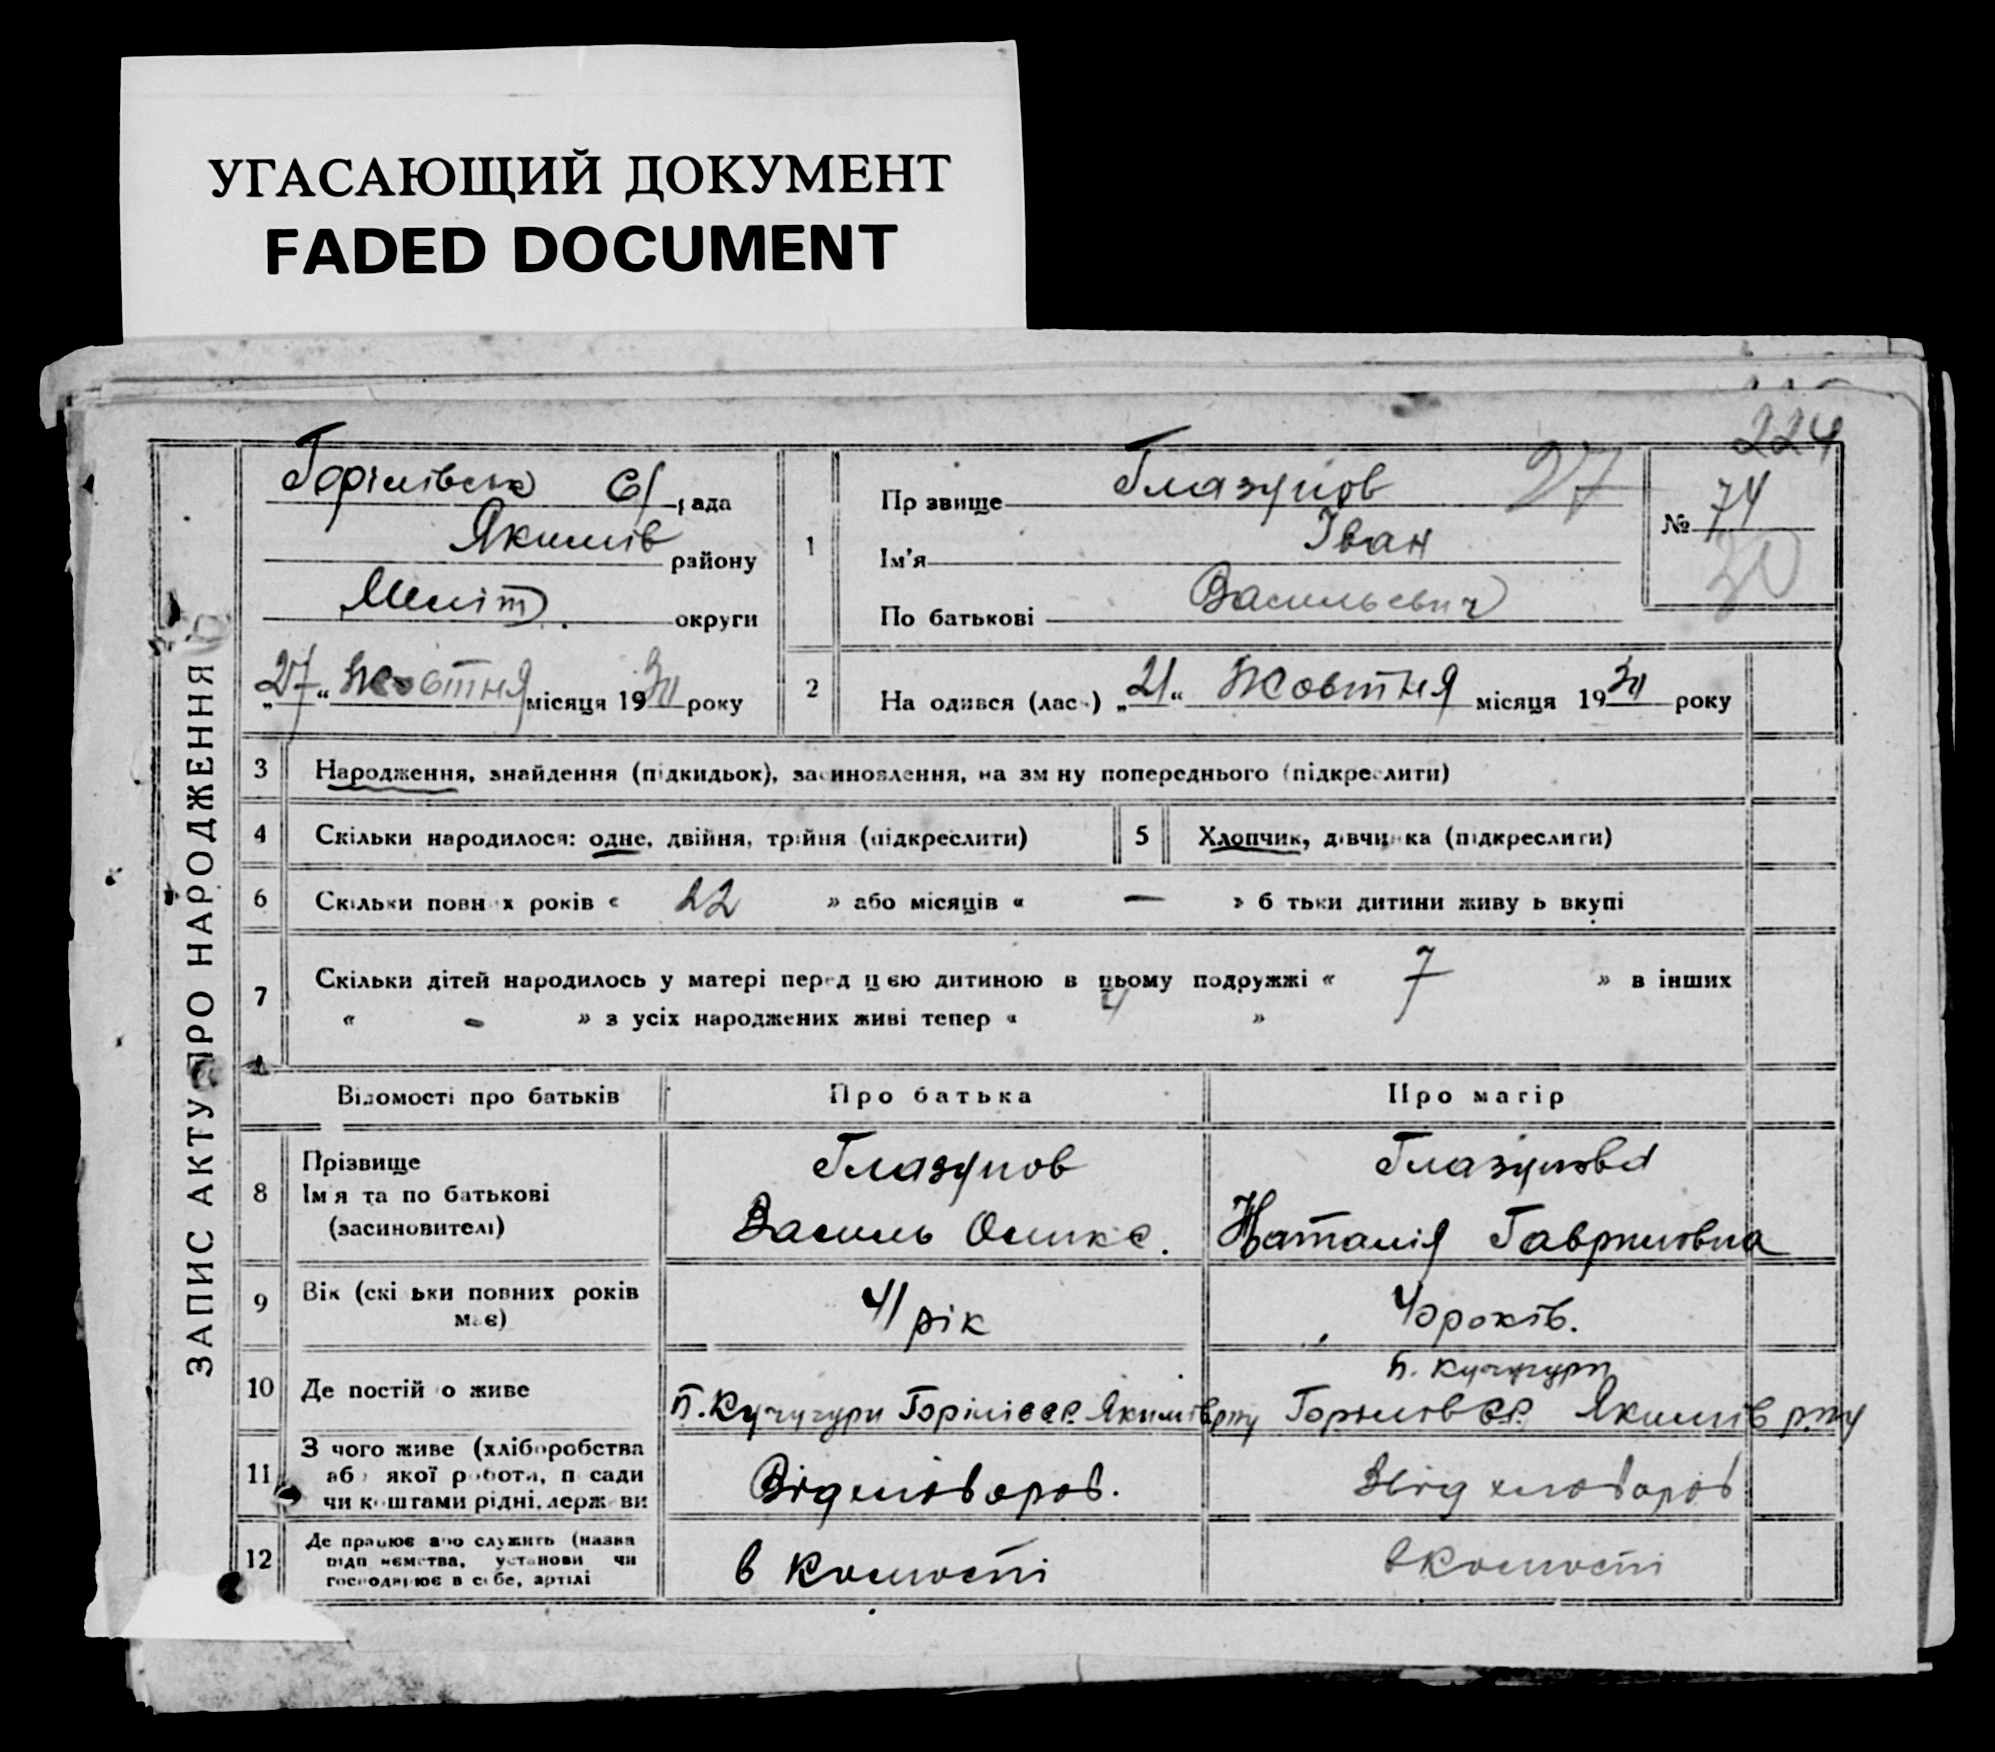 УГАСАЮЩИЙ ДОКУМЕНТ
FADED DOCUMENT
224
ЗАПИС АКТУ ПРО НАРОДЖЕННЯ
Горілівська С/рада
Якимів району
Меліт. округи
„27“ Жовтня місяця 1930 року
1
Пр звище Глазунов 27
Ім'я Іван
По батькові Васильевич
№ 74
30
2 На одився (лас ) „21“ Жовтня місяця 1930 року
3 Народження, знайдення (підкидьок), засиновлення, на зм ну попереднього (підкреслити)
4 Скільки народилося: одне, двійня, трійня (підкреслити) 5 Хлопчик, дівчинка (підкреслити)
6 Скільки повних років « 22 » або місяців « — » б тьки дитини живу ь вкупі
7 Скільки дітей народилось у матері перед цією дитиною в цьому подружжі « 7 » в інших
« - » з усіх народжених живі тепер « 4 »
Відомості про батьків Про батька Про матір
8 Прізвище Глазунов Глазунова
Ім'я та по батькові Василь Наталія Гавриловна
(засиновителі)
9 Вік (скі ьки повних років має) 41 рік 40 років.
10 Де постій о живе
п. Кучугури
п. Кучугури Горілів с.р. Якимів р-ну Горілів с.р. Якимів р-ну
11 З чого живе (хліборобства
аб якої роботи, п сади
чи коштами рідні, держави
12 Де працює або служить (назва
підп иємства, установи чи
господарює в себе, артілі
в